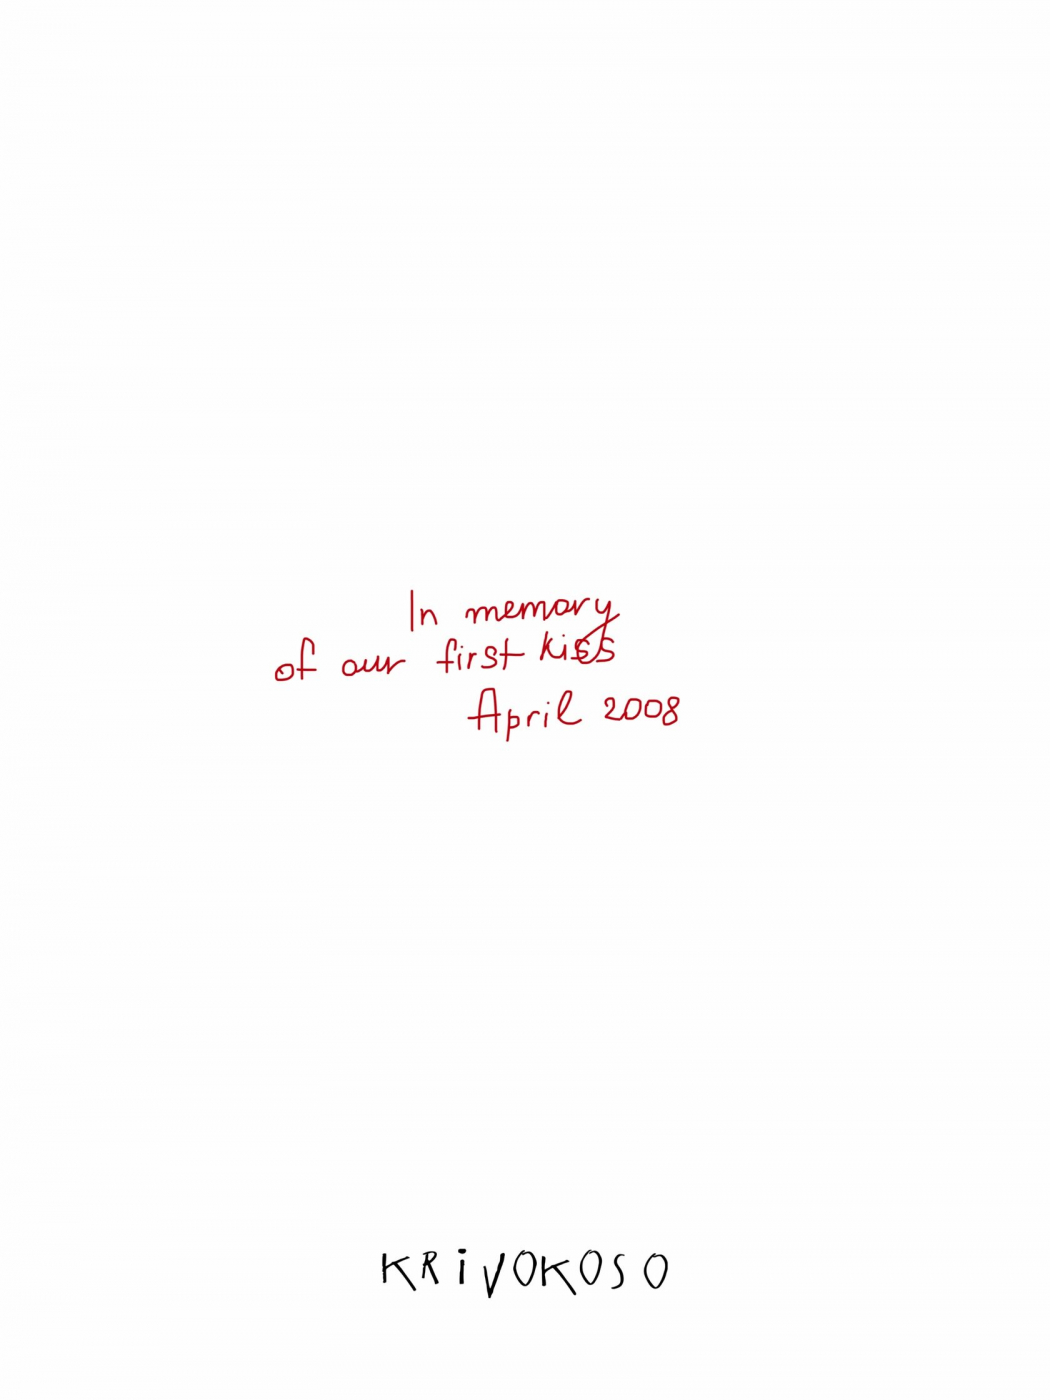 In memory
of our first kiss
April 2008
KRiVOKOSO